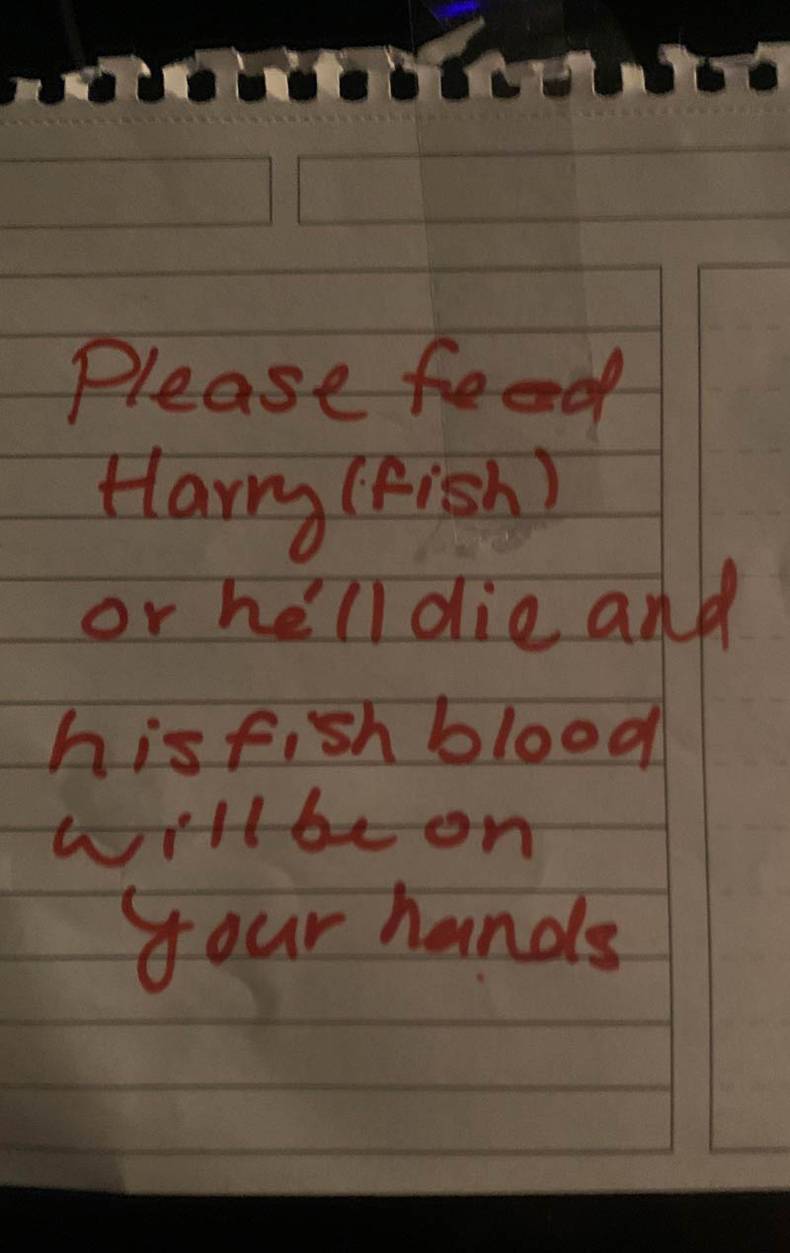 Please feed
Harry (fish)
or he'll die and
his fish blood
will be on
your hands